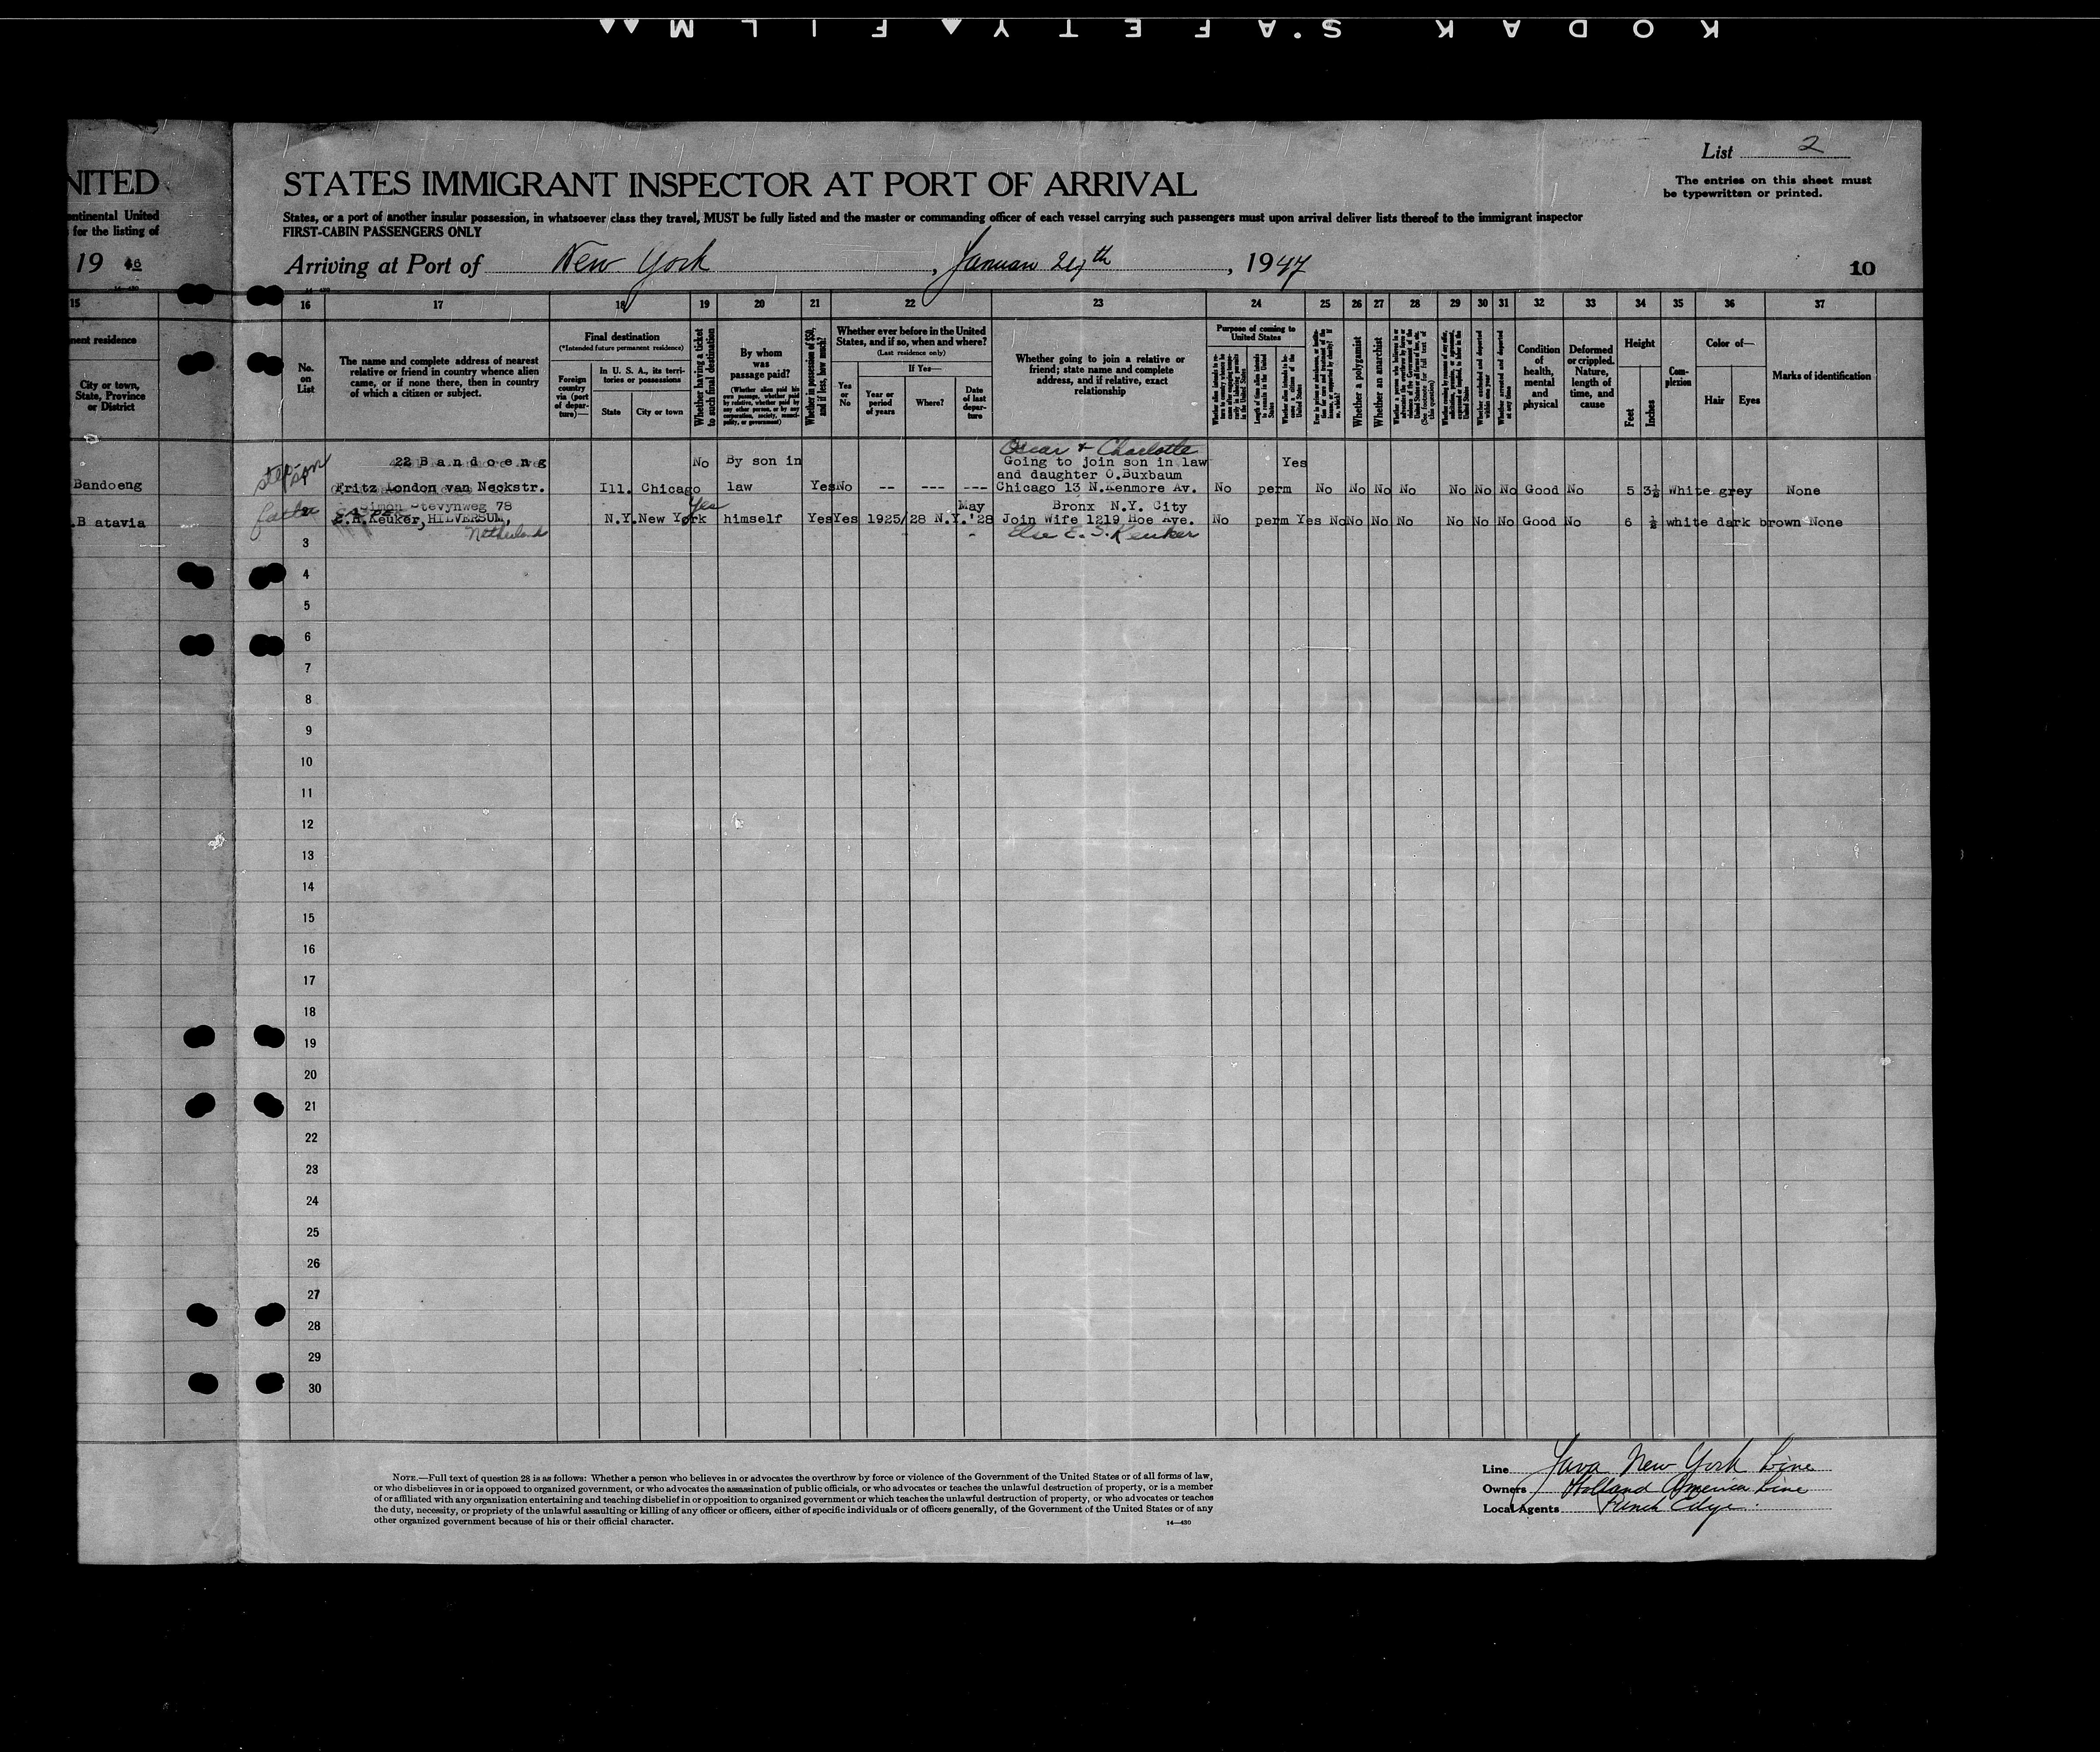 KODAK S.AFETY FILM
List 2
The entries on this sheet must
be typewritten or printed.
NITED
STATES IMMIGRANT INSPECTOR AT PORT OF ARRIVAL
ontinental United
for the listing of
States, or a port of another insular possession, in whatsoever class they travel, MUST be fully listed and the master or commanding officer of each vessel carrying such passengers must upon arrival deliver lists thereof to the immigrant inspector
FIRST-CABIN PASSENGERS ONLY
19 46
Arriving at Port of New York, 1947
10
15 16 17 18 19 20 21 22 23 24 25 26 27 28 29 30 31 32 33 34 35 36 37
nent residence
City or town,
State, Province
or District
No.
on
List
The name and complete address of nearest
relative or friend in country whence alien
came, or if none there, then in country
of which a citizen or subject.
Final destination
(*Intended future permanent residence)
Foreign
country
via (port
of depar-
ture)—
In U. S. A., its terri-
tories or possessions
State
City or town
Whether having a ticket
to such final destination
By whom
was
passage paid?
(Whether alien paid his
own passage, whether paid
by relative, whether paid by
any other person, or by any
corporation, society, munici-
pality, or government)
Whether in possession of $50,
and if less, how much?
Whether ever before in the United
States, and if so, when and where?
(Last residence only)
Yes
or
No
If Yes—
Year or
period
of years
Where?
Date
of last
depar-
ture
Whether going to join a relative or
friend; state name and complete
address, and if relative, exact
relationship
Purpose of coming to
United States
Length of time alien intends
to remain in the United
States
Whether a polygamist
Whether an anarchist
Condition
of
health,
mental
and
physical
Deformed
or crippled.
Nature,
length of
time, and
cause
Height
Feet
Inches
Com-
plexion
Color of—
Hair
Eyes
Marks of identification
Oscar + Charlotte
step-son
22 Bandoeng No By son in Going to join son in law Yes
and daughter O.Buxbaum
Bandoeng Fritz London van Neckstr. Ill. Chicago law Yes No -- --- --- Chicago 13 N.Kenmore Av. No perm No No No No No No No Good No 5 3½ White grey None
Stevynweg 78 Yes May Bronx N.Y. City
father
.B atavia Keuker, HILVERSUM, N.Y. New York himself Yes Yes 1925/28 N.Y. '28 Join Wife 1219 Hoe Ave. No perm Yes No No No No No No No Good No 6 ½ white dark brown None
Netherland Else E. S. Keuker
3
4
5
6
7
8
9
10
11
12
13
14
15
16
17
18
19
20
21
22
23
24
25
26
27
28
29
30
NOTE.—Full text of question 28 is as follows: Whether a person who believes in or advocates the overthrow by force or violence of the Government of the United States or of all forms of law,
or who disbelieves in or is opposed to organized government, or who advocates the assassination of public officials, or who advocates or teaches the unlawful destruction of property, or is a member
of or affiliated with any organization entertaining and teaching disbelief in or opposition to organized government or which teaches the unlawful destruction of property, or who advocates or teaches
the duty, necessity, or propriety of the unlawful assaulting or killing of any officer or officers, either of specific individuals or of officers generally, of the Government of the United States or of any
other organized government because of his or their official character.
14—430
Line Java New York Line
Owners Holland America Line
Local Agents